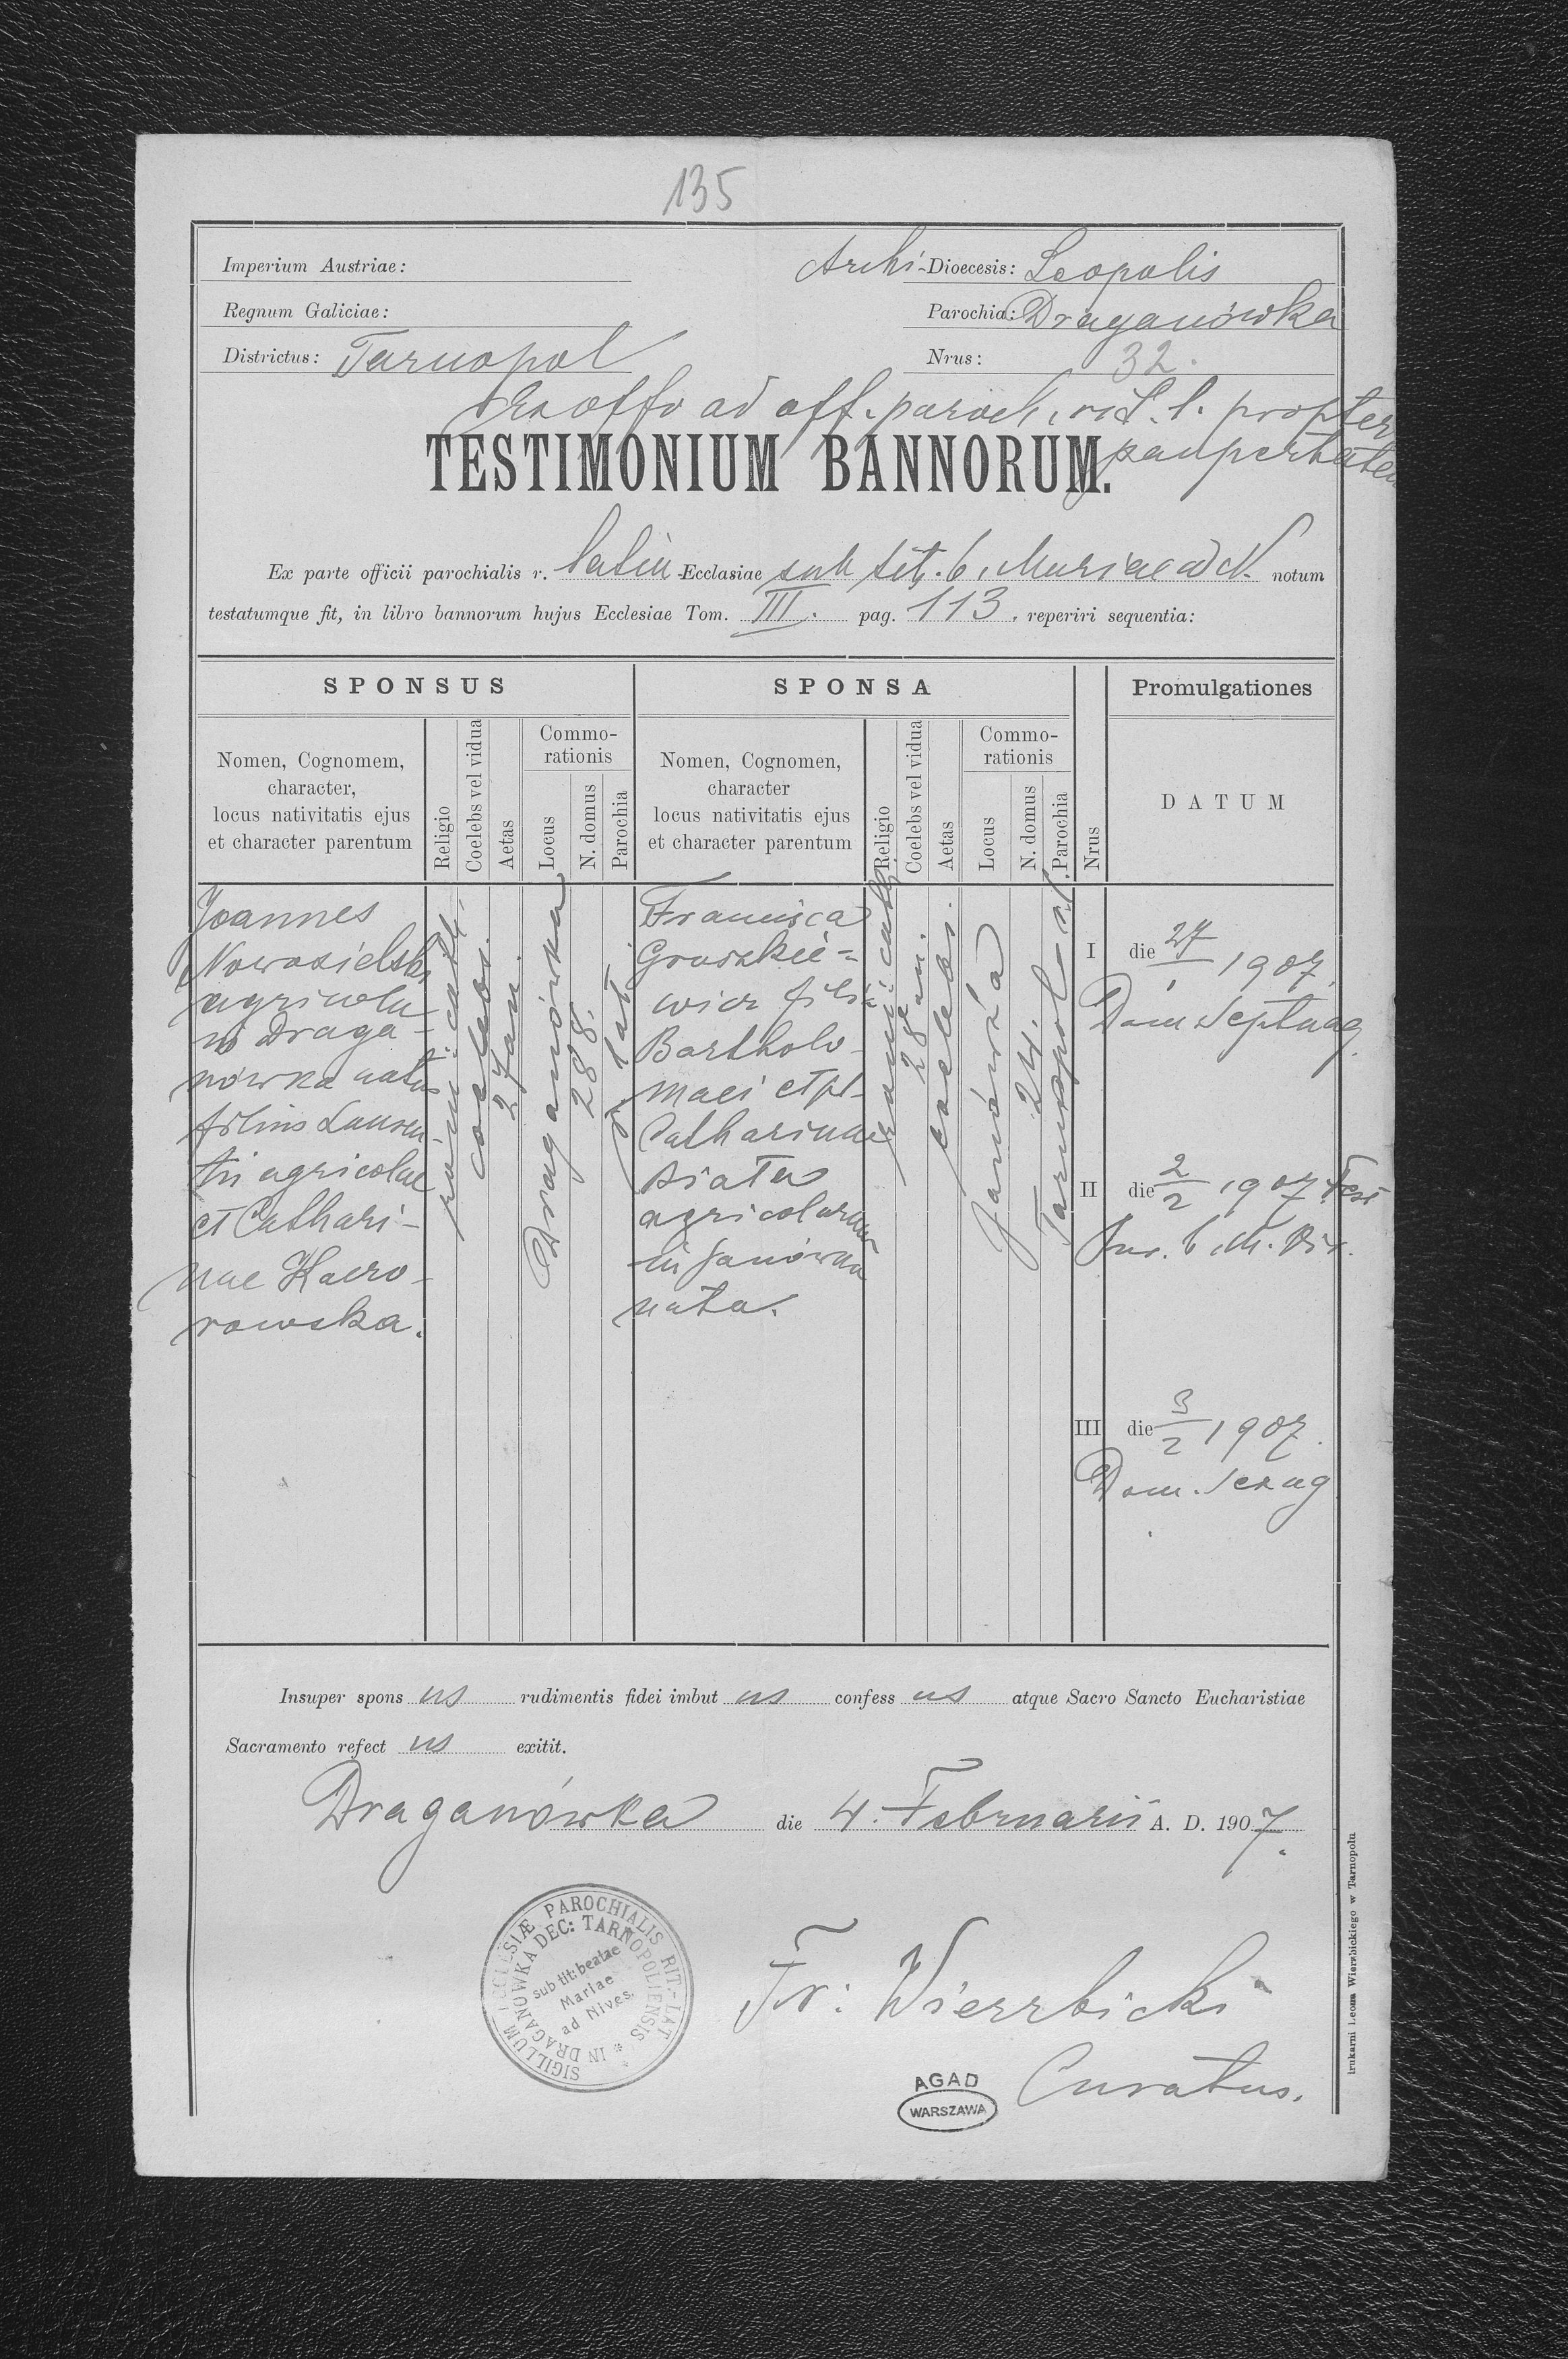 135
Imperium Austriae:
Archi-Dioecesis: Leopolis
Regnum Galiciae:
Parochia: Draganówka
Districtus: Tarnopol
Nrus: 32.
Ex offo ad off. paroch. rit. l. propter
paupertatem
TESTIMONIUM BANNORUM.
Ex parte officii parochialis r. latin Ecclasiae sub tit. b. Mariae ad N. notum
testatumque fit, in libro bannorum hujus Ecclesiae Tom. III. pag. 113. reperiri sequentia:
SPONSUS
SPONSA
Promulgationes
Nomen, Cognomem,
character,
locus nativitatis ejus
et character parentum
Religio
Coelebs vel vidua
Aetas
Commo-
rationis
Locus
N. domus
Parochia
Nomen, Cognomen,
character
locus nativitatis ejus
et character parentum
Religio
Coelebs vel vidua
Aetas
Commo-
rationis
Locus
N. domus
Parochia
Nrus
DATUM
Joannes
Nowosielski
agricola
in Draga-
nówka natus
filius Lauren-
tii agricolae
et Cathari-
nae Kacro-
rowska.
rom: cath.
coelebs.
27 an.
Draganówka
288.
r. lat.
Francisca
Gruszkie-
wicz filia
Bartholo-
maei et
Catharinae
Siata
agricolarum
in Janówka
nata.
rom: cath.
28 an.
coelebs.
Janówka
24.
Tarnopol r. l.
I die 27/1 1907.
Dom Septuag.
II die 2/2 1907 Fest
Pur. b. M. Vir.
III die 3/2 1907.
Dom. Sexag
Insuper spons us rudimentis fidei imbut us confess us atque Sacro Sancto Eucharistiae
Sacramento refect us exitit.
Draganówka die 4. Februarii A. D. 1907.
SIGILLUM ECCLESIÆ PAROCHIALIS RIT: LAT
IN DRAGANOWKA DEC: TARNOPOLIENSIS
sub tit: beatae
Mariae
ad Nives.
Fr: Wierzbicki
Curatus.
AGAD
WARSZAWA
drukarni Leona Wierzbickiego w Tarnopolu